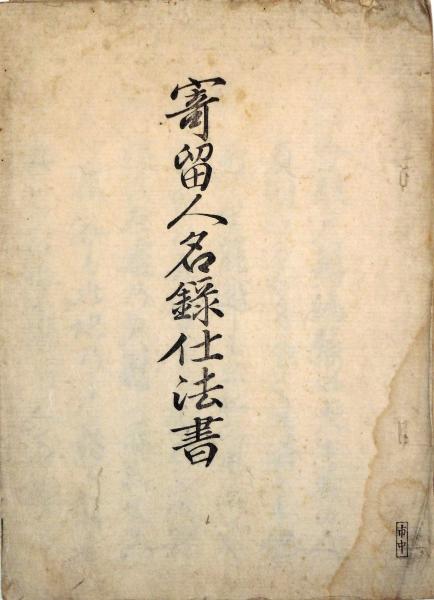 寄留人名録仕法書
市中